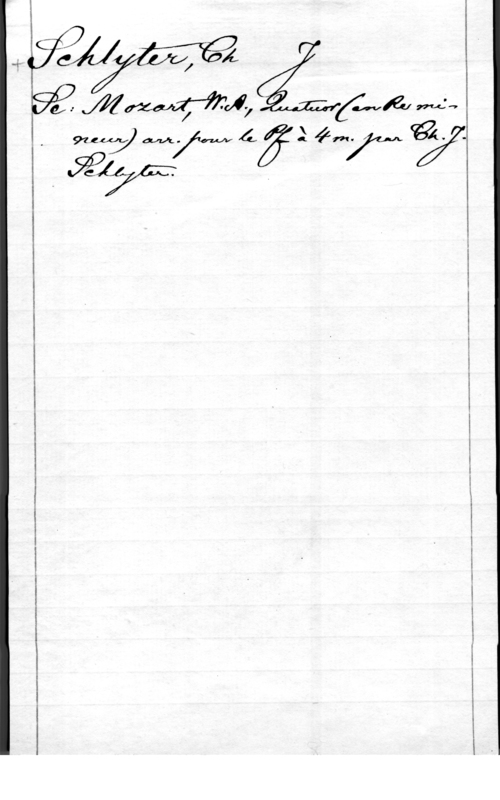 Schlyter, Ch J
Se: Mozart, W. A., Quatuor (en Re mi-
neur) arr. pour le Pf à 4 m. par Ch. J.
Schlyter.